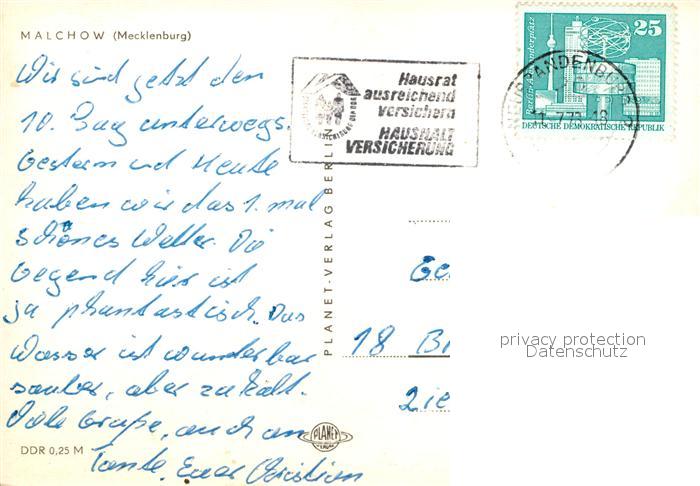 MALCHOW (Mecklenburg)
Wir sind jetzt den
10. Tag unterwegs.
Gestern und Heute
haben wir das 1. mal
schönes Wetter. Die
Gegend hier ist
ja phantastisch. Das
Wasser ist wunderbar
sauber, aber zu kalt.
Viele Grüße, auch an
Tante. Euer Christian
DDR 0,25 M
PLANET-VERLAG BERLIN
PLANET
Hausrat
ausreichend
versichern
HAUSHALT
VERSICHERUNG
25
Berlin Alexanderplatz
DEUTSCHE DEMOKRATISCHE REPUBLIK
NEUBRANDENBURG
Ge
18 B
2 ie
privacy protection
Datenschutz